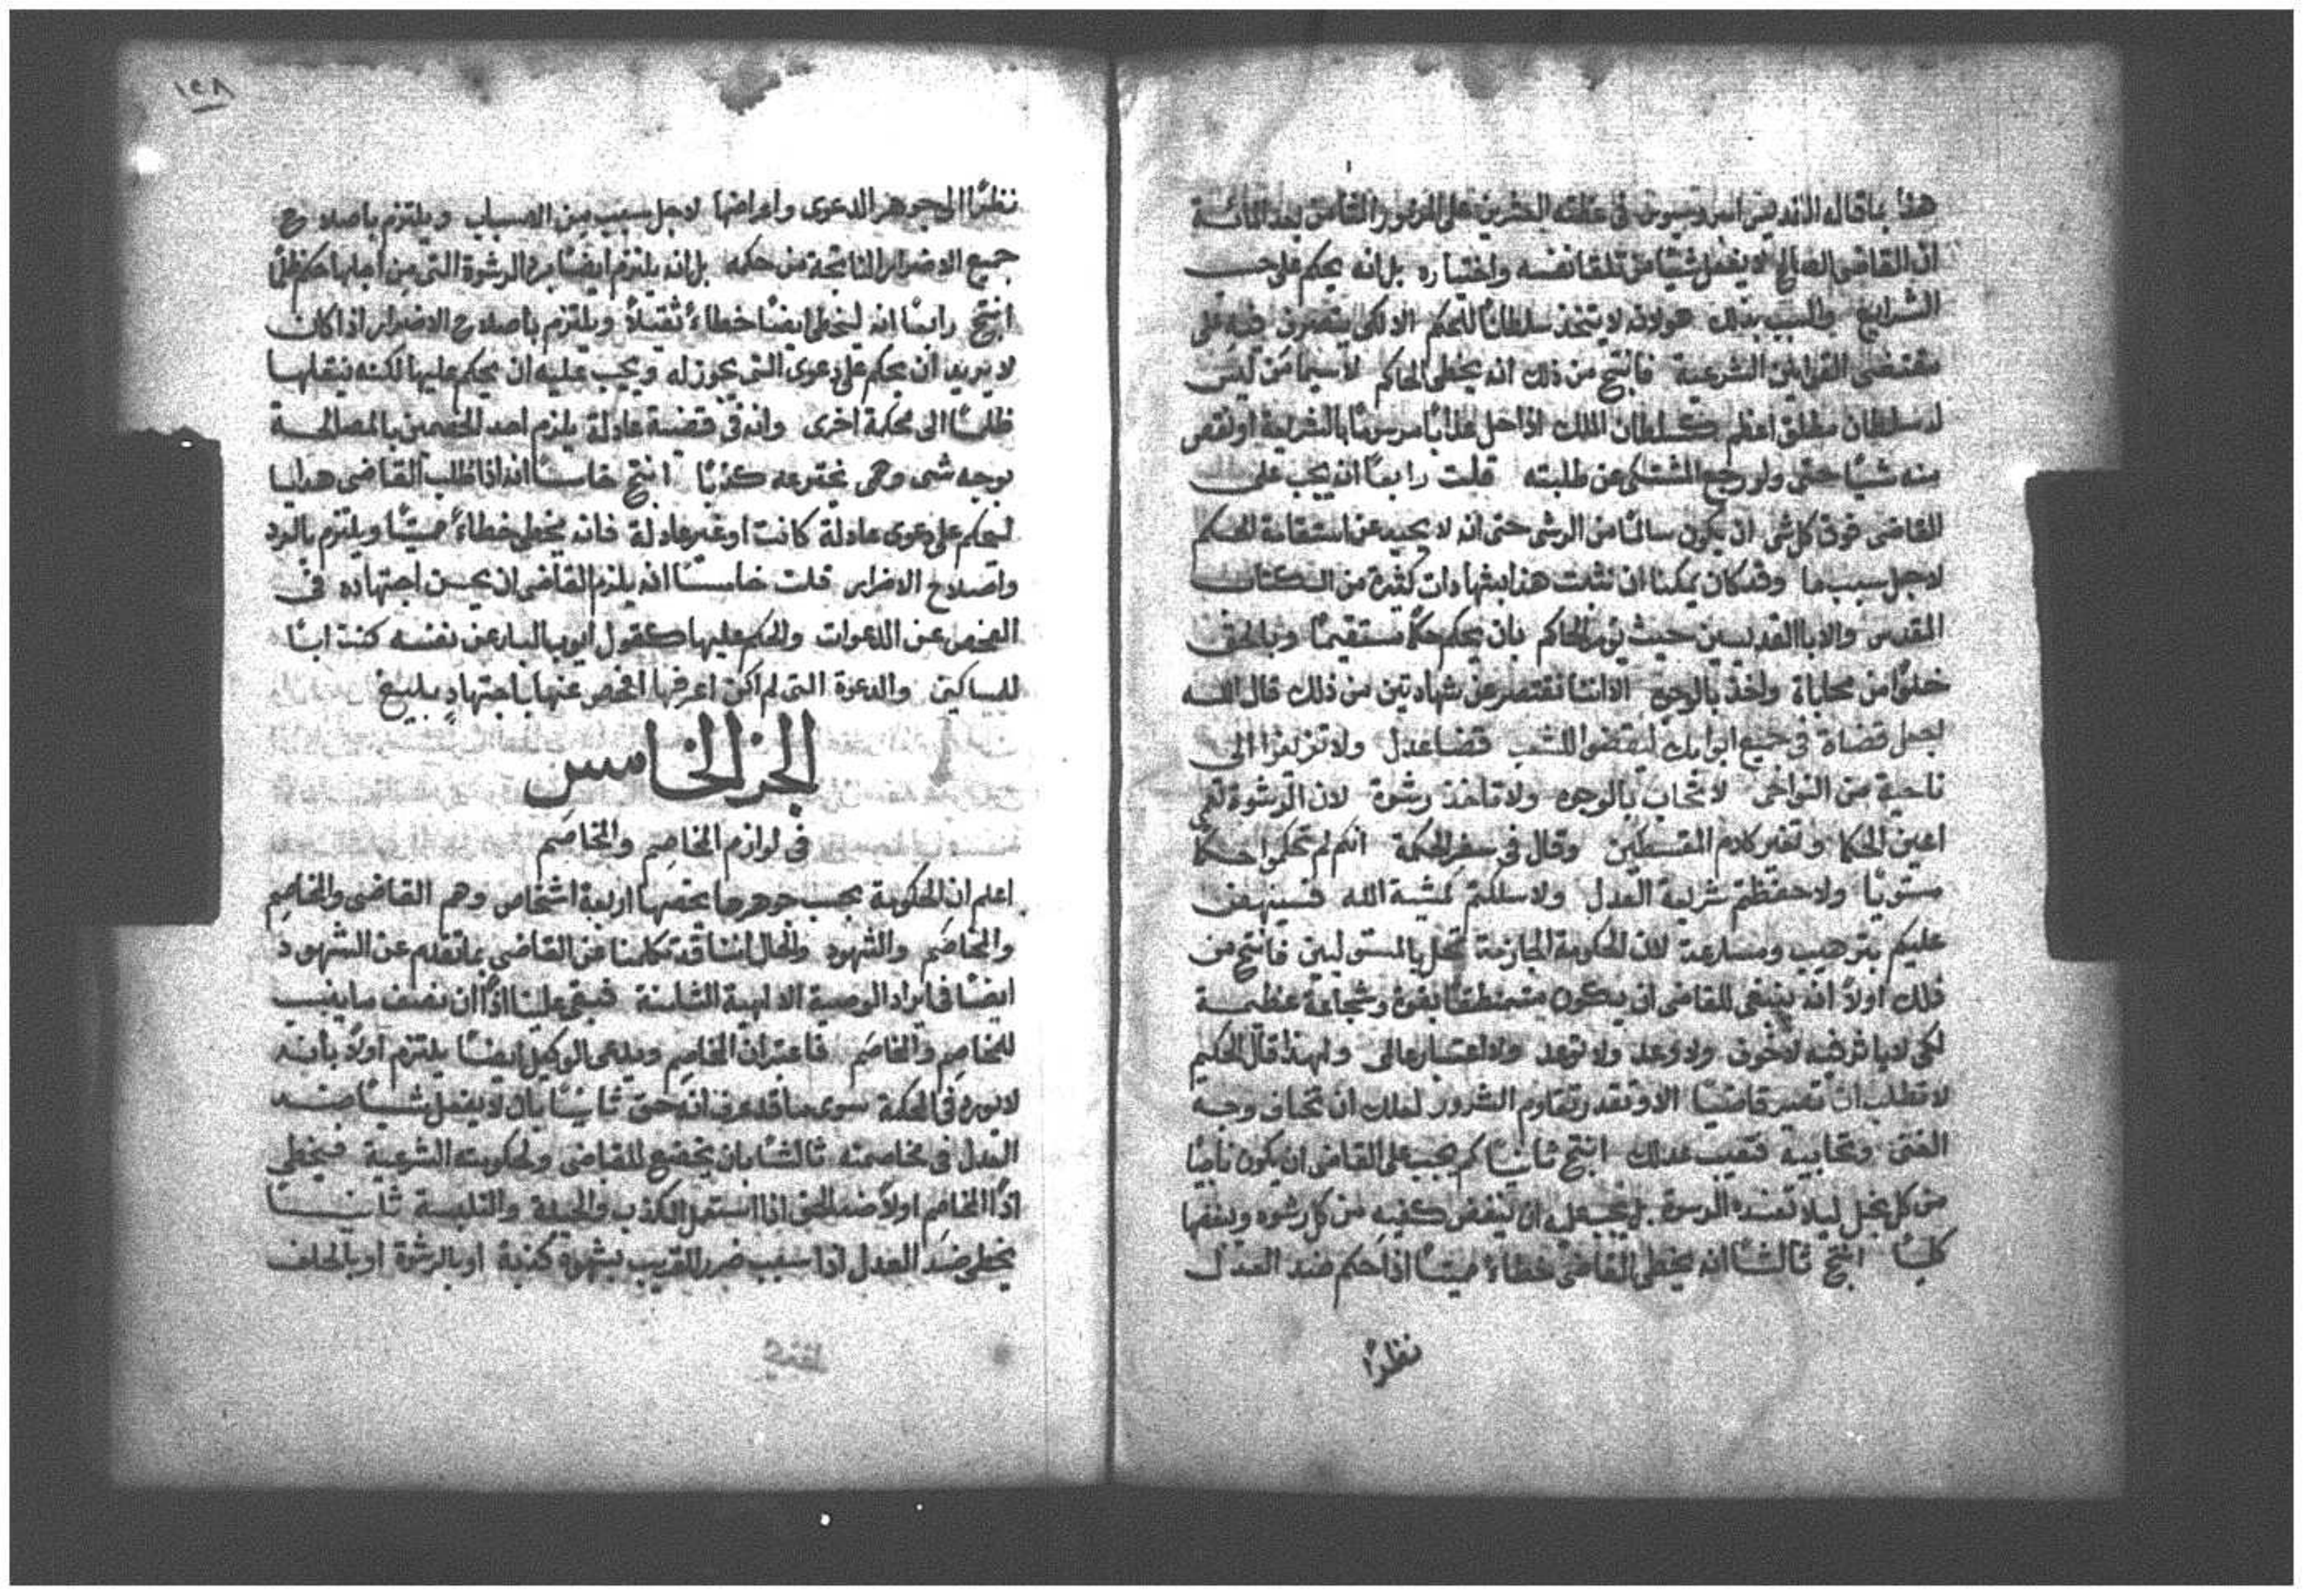 هذا بما قاله القديس امبروسيوس في عظته العشرين على المزمور الثامن بعد المائة
ان القاضي الصالح لا يفعل شيئا من تلقا نفسه واختياره بل انه يحكم على حسب
الشرايع والسبب بذلك هو لانه لا يتخذ سلطانا للحكم الا لكي يتصرف فيه على
مقتضى القوانين الشرعية فانتج من ذلك انه يخطي الحاكم لاسيما من ليس
له سلطان مطلق اعظم كسلطان الملك اذا حل عذابا مرسوما بالشريعة او نقص
منه شيئا حتى ولو رجع المشتكي عن طلبته قلت رابعا انه يجب على
القاضي فوق كل شي ان يكون سالما من الرشى حتى انه لا يحيد عن استقامة الحكم
لاجل سبب ما وقد كان يمكنا ان نثبت هذا بشهادات كثيرة من الكتاب
المقدس والابا القديسين حيث يومر الحاكم بان يحكم حكما مستقيما وبالحق
خلوا من محاباة واخذ بالوجوه الا اننا نقتصر عن شهادتين من ذلك قال الله
اجعل قضاة في جميع ابوابك ليقضوا للشعب قضا عدل ولا تزيغوا الى
ناحية من النواحي لا تحاب بالوجوه ولا تاخذ رشوة لان الرشوة تعمي
اعين الحكما وتغير كلام المقسطين وقال في سفر الحكمة انكم لم تحكموا حكما
مستويا ولا حفظتم شريعة العدل ولا سلكتم كمشية الله فسينهض
عليكم بترهيب ومسارعة لان الحكومة الجازمة تحل بالمستولين فانتج من
ذلك اولا انه ينبغي للقاضي ان يكون متمنطقا بقوة وشجاعة عظيمة
لكي لا ياثر فيه لا خوف ولا وعد ولا توعد ولا اعتبار عالمي ولهذا قال الحكيم
لا تطلب ان تصير قاضيا الا وتقدر تقاوم الشرور لعلك ان تخاف وجه
الغني وتحابيه فتعيب عدلك انتج ثانيا كم يجب على القاضي ان يكون ناجيا
من كل بخل ليلا تفسده الرشوة بل يجب عليه ان ينفض كفيه من كل رشوه ويبغضها
كليا انتج ثالثا انه يخطي القاضي خطاء مميتا اذا حكم ضد العدل
نظرا
١٢٨
نظرا الى جوهر الدعوى واعراضها لاجل سبب من الاسباب ويلتزم باصلاح
جميع الاضرار الناتجة من حكمه بل انه يلتزم ايضا برد الرشوة التي من اجلها حكم ظلما
انتج رابعا انه يخطي ايضا خطاء ثقيلا ويلتزم باصلاح الاضرار اذا كان
لا يريد ان يحكم على دعوى التي يجوز له ويجب عليه ان يحكم عليها لكنه ينقلها
ظلما الى محكمة اخرى وانه في قضية عادلة يلزم احد الخصمين بالمصالحة
بوجه شي وهمي يخترعه كذبا انتج خامسا انه اذا طلب القاضي هدايا
ليحكم على دعوى عادلة كانت او غير عادلة فانه يخطي خطاء مميتا ويلتزم بالرد
واصلاح الاضرار قلت خامسا انه يلزم القاضي ان يحسن اجتهاده في
الفحص عن الدعوات والحكم عليها كقول ايوب البار عن نفسه كنت ابا
للمساكين والدعوة التي لم اكن اعرفها افحص عنها باجتهاد بليغ
الجز الخامس
في لوازم المخاصِم والمخاصَم
اعلم ان الحكومة بحسب جوهرها يخصها اربعة اشخاص وهم القاضي والمخاصِم
والمخاصَم والشهود والحال اننا قد تكلمنا عن القاضي بما تقدم عن الشهود
ايضا في ايراد الوصية الالهية الثامنة فبقى علينا اذًا ان نصف ما يجب
للمخاصِم والمخاصَم فاعتبر ان المخاصِم ويدعى الوكيل ايضا يلتزم اولا بانه
لا يورد في المحكمة سوى ما قد عرف انه حق ثانيا بان لا يفعل شيا ضد
العدل في مخاصمته ثالثا بان يخضع للقاضي ولحكومته الشرعية فيخطي
اذًا المخاصِم اولا ضد الحق اذا استعمل الكذب والحيلة والتلبسة ثانيا
يخطي ضد العدل اذا سبب ضرر القريب بشهود كذبة او بالرشوة او بالحلف